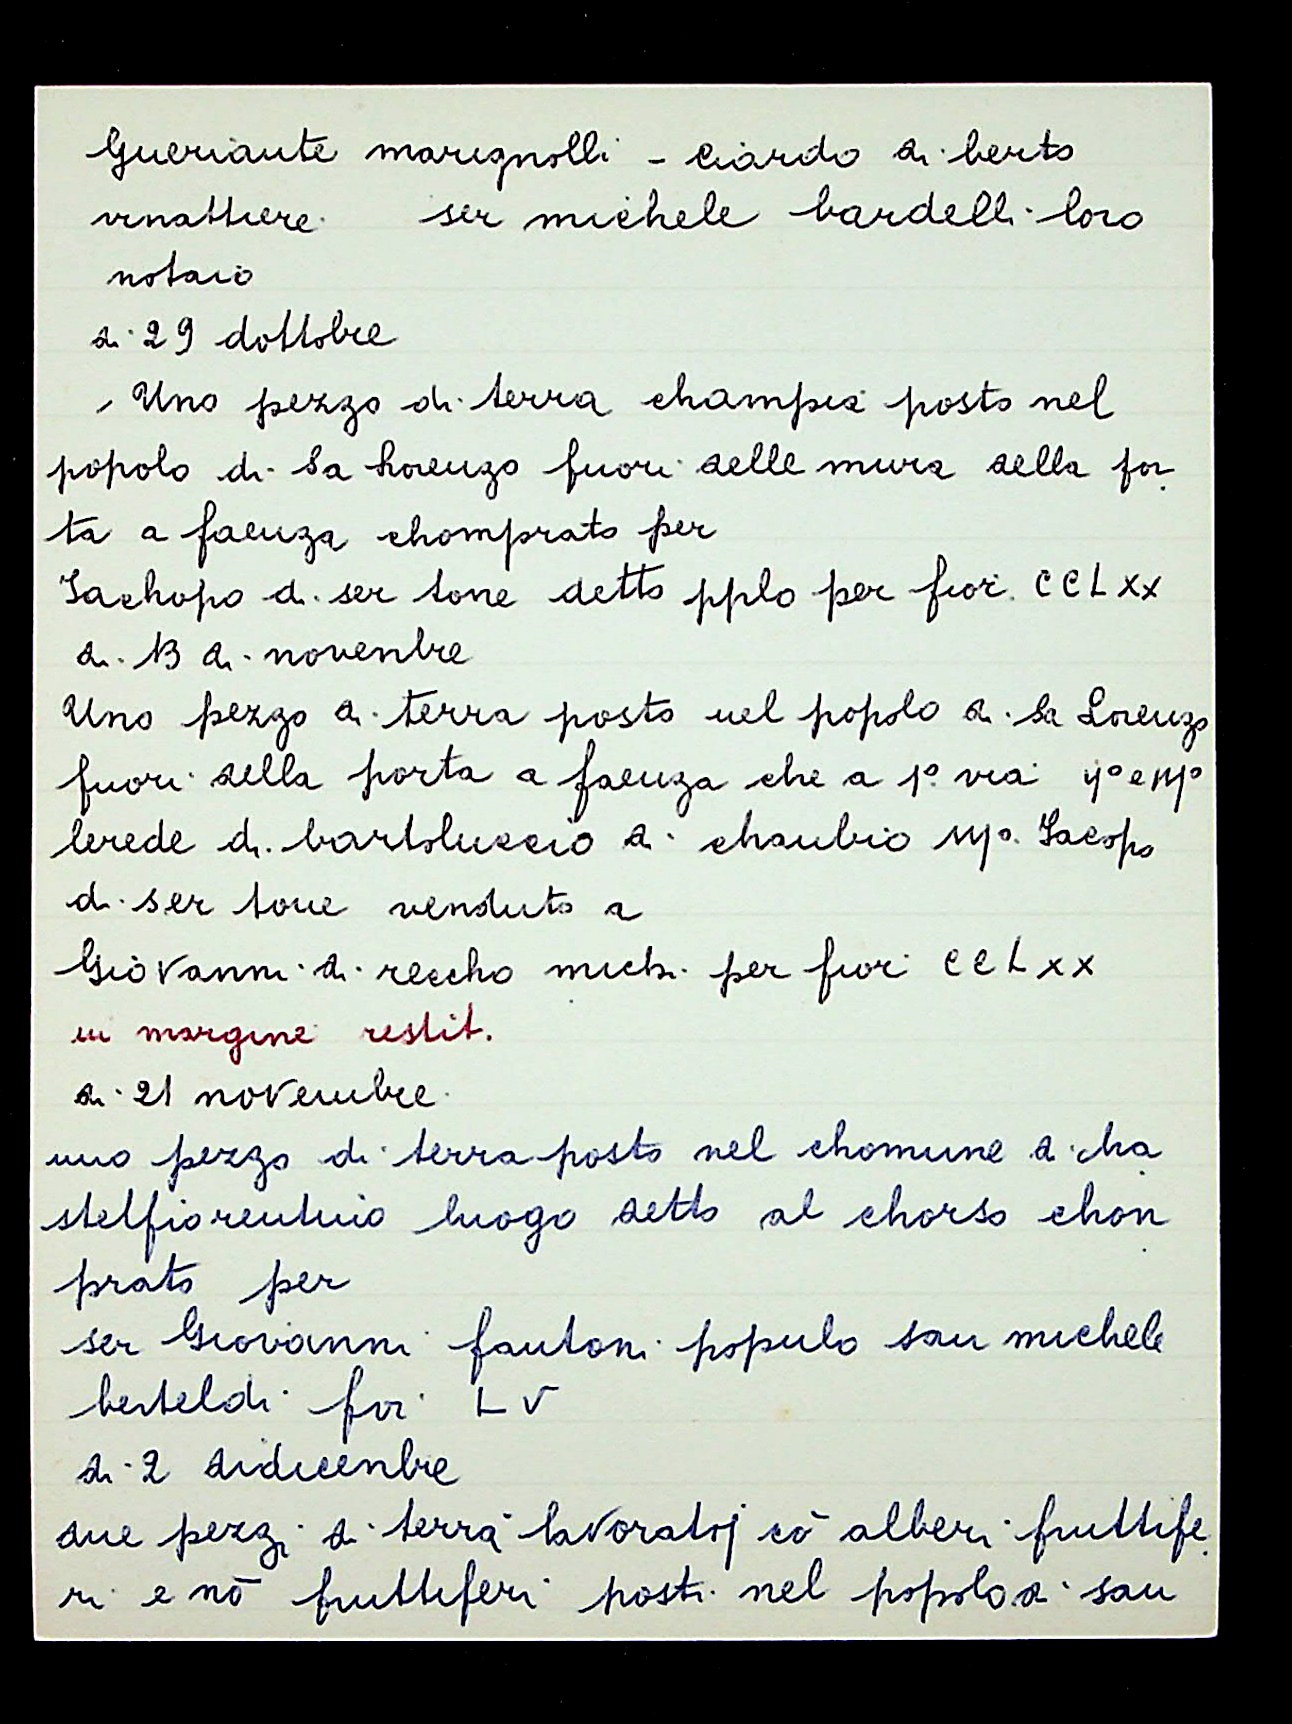 Gueriante marignolli - Ciardo di berto
vinattiere ser michele bardelli loro
notaio
di 29 dottobre
, Uno pezzo di terra champia posto nel
popolo di Sa Lorenzo fuori delle mura della por
ta a faenza chomprato per
Iachopo di ser tone detto pplo per fior. CCLXX
di 13 di novenbre
Uno pezzo di terra posto nel popolo di Sa Lorenzo
fuori della porta a faenza che a 1º via 11º e 111º
lerede di bartoluccio di chanbio 1111º Iacopo
di ser tone venduto a
Giovanni di reccho mich. per fior CCLXX
in margine restit.
di 21 novembre
uno pezzo di terra posto nel chomune di cha
stelfiorentino luogo detto al chorso chon
prato per
ser Giovanni fantoni populo san michele
berteldi fior LV
di 2 didicenbre
due pezzi di terra lavoratoj cō alberi fruttife
ri e nō fruttiferi posti nel popolo di san